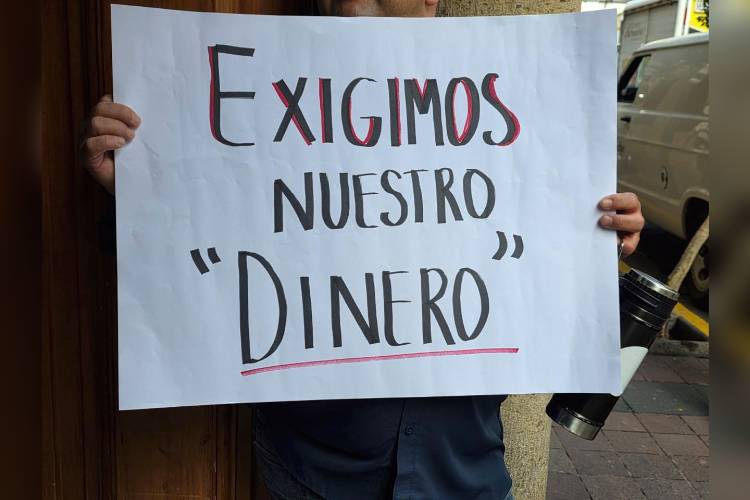 EXIGIMOS
NUESTRO
"DINERO"